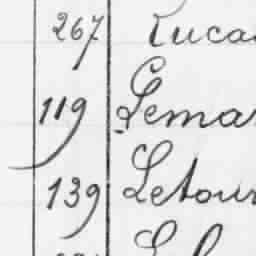 267 Luca
119 Lemar
139 Letour